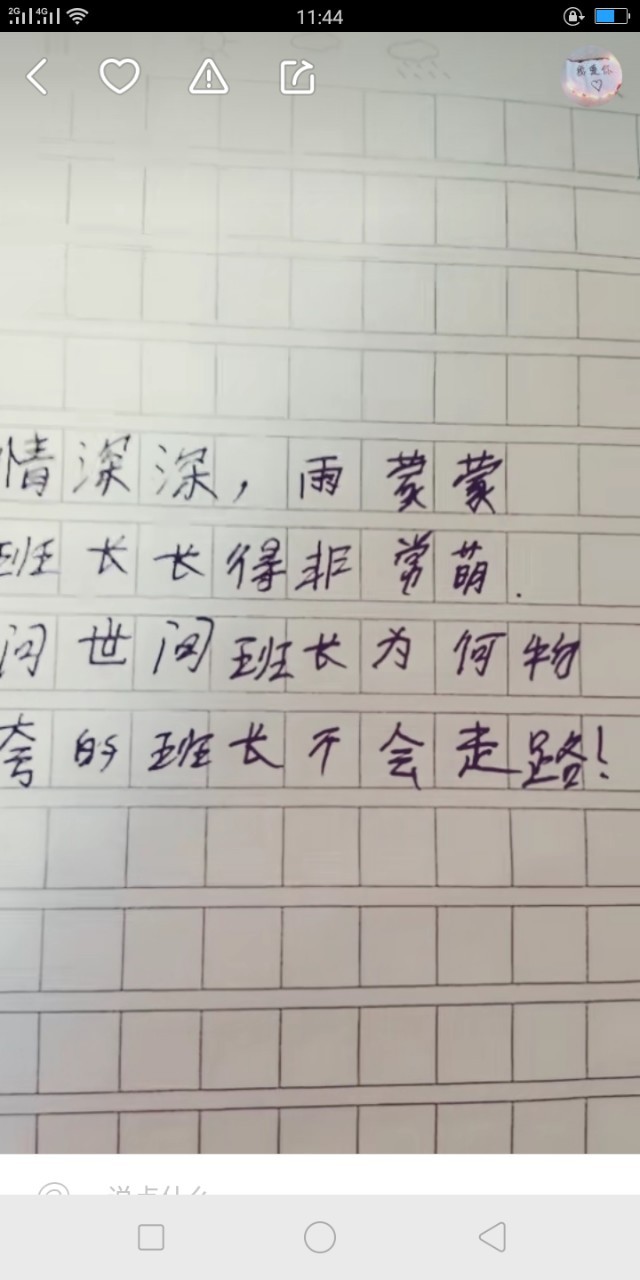 2G 4G 11:44
情深深，雨蒙蒙
班长长得非常萌.
问世间班长为何物
夸的班长不会走路!
说点什么